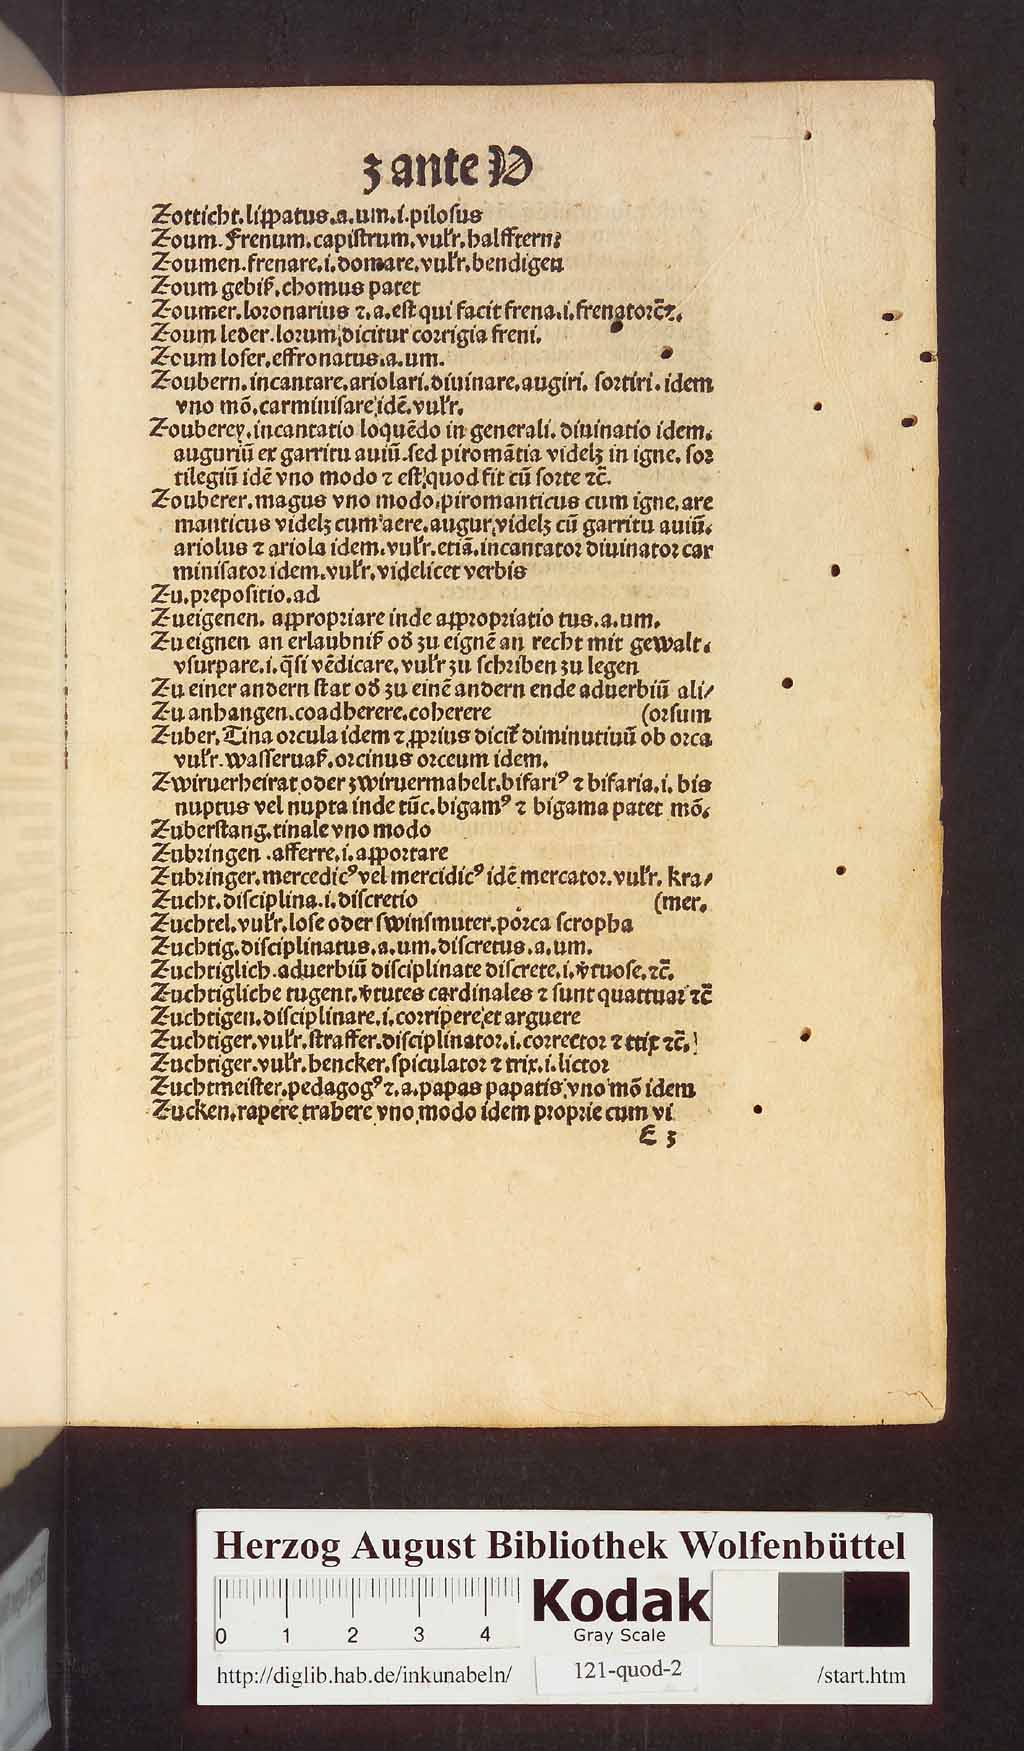 z ante V
Zotticht.lippatus.a.um.i.pilosus
Zoum.frenum.capistrum.vulr.halfftern:
Zoumen.frenare.i.domare.vulr.bendigen
Zoum gebiß.chomus patet
Zoumer.loronarius ⁊.a.est qui facit frena.i.frenatorc̄⁊.
Zoum leder.lorum,dicitur corrigia freni.
Zoum loser.effronatus.a.um.
Zoubern.incantare.ariolari.diuinare.augiri. sortiri. idem
vno mō.carminisare,idē.vulr.
Zouberey.incantatio loquēdo in generali. diuinatio idem.
auguriū ex garritu auiū.sed piromātia videlꝫ in igne. sor
tilegiū idē vno modo ⁊ est,quod fit cū sorte ⁊c̄.
Zouberer.magus vno modo.piromanticus cum igne.are
manticus videlꝫ cum aere.augur,videlꝫ cū garritu auiū.
ariolus ⁊ ariola idem.vulr.etiā.incantator diuinator car
minisator idem.vulr.videlicet verbis
Zu.prepositio.ad
Zueigenen. appropriare inde appropriatio tus.a.um.
Zu eignen an erlaubniß od̄ zu eignē an recht mit gewalt.
vsurpare.i.q̄si vēdicare.vulr zu schriben zu legen
Zu einer andern stat od̄ zu einē andern ende aduerbiū ali/
Zu anhangen.coadherere.coherere (orsum
Zuber. Tina orcula idem ⁊ ꝓprius dicit̄ diminutiuū ob orca
vulr.wasseruaß.orcinus orceum idem.
Zwiruerheirat oder zwiruermahelt.bifariꝰ ⁊ bifaria.i. bis
nuptus vel nupta inde tūc.bigamꝰ ⁊ bigama patet mō.
Zuberstang.tinale vno modo
Zubringen .afferre.i.apportare
Zubringer.mercedicꝰ vel mercidicꝰ idē mercator.vulr. kra/
Zucht.disciplina.i.discretio (mer.
Zuchtel.vulr.lose oder swinsmuter.porca scropha
Zuchtig.disciplinatus.a.um.discretus.a.um.
Zuchtiglich.aduerbiū disciplinate discrete.i.v̄tuose.⁊c̄.
Zuchtigliche tugent.v̄tutes cardinales ⁊ sunt quattuar ⁊c̄
Zuchtigen.disciplinare.i.corripere,et arguere
Zuchtiger.vulr.straffer.disciplinator.i.corrector ⁊ ttix ⁊c̄.
Zuchtiger.vulr.hencker.spiculator ⁊ trix.i.lictor
Zuchtmeister.pedagogꝰ ⁊.a.papas papatis,vno mō idem
Zucken.rapere trahere vno modo idem proprie cum vi
E 3
Herzog August Bibliothek Wolfenbüttel
0 1 2 3 4
Kodak
Gray Scale
http://diglib.hab.de/inkunabeln/ 121-quod-2 /start.htm